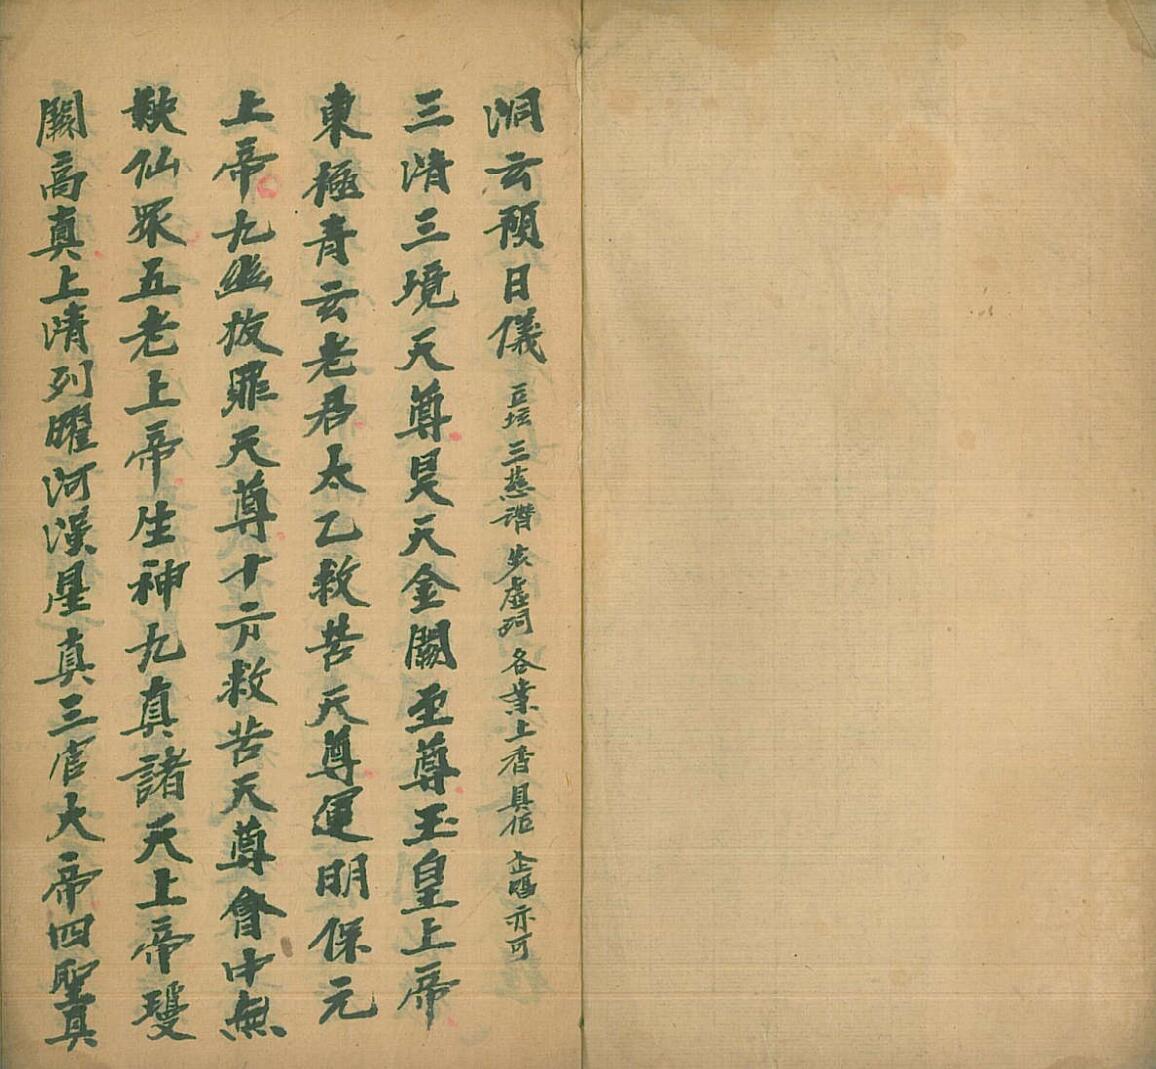 洞云預日儀 立坛 三慈讚 步虛詞 各業上香具位 亦可
三清三境天尊昊天金闕至尊玉皇上帝
東極青云老君太乙救苦天尊運明保元
上帝九幽拔罪天尊十方救苦天尊會中無
歎仙眾五老上帝生神九真諸天上帝瓊
闕高真上清列曜河漢星真三官大帝四聖真